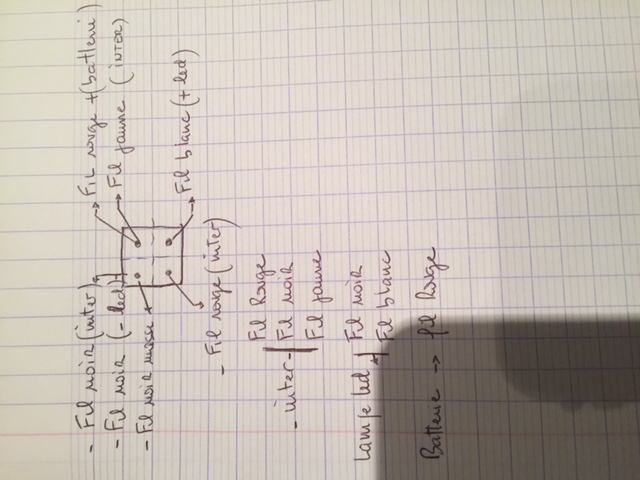 - Fil noir (inter)
- Fil noir (- led)
- Fil noir masse
→ Fil rouge + (batterie)
→ Fil jaune (inter)
→ Fil blanc (+ led)
- Fil rouge (inter)
Fil Rouge
- inter - Fil noir
Fil jaune
Lampe led Fil noir
+ Fil blanc
Batterie → fil Rouge